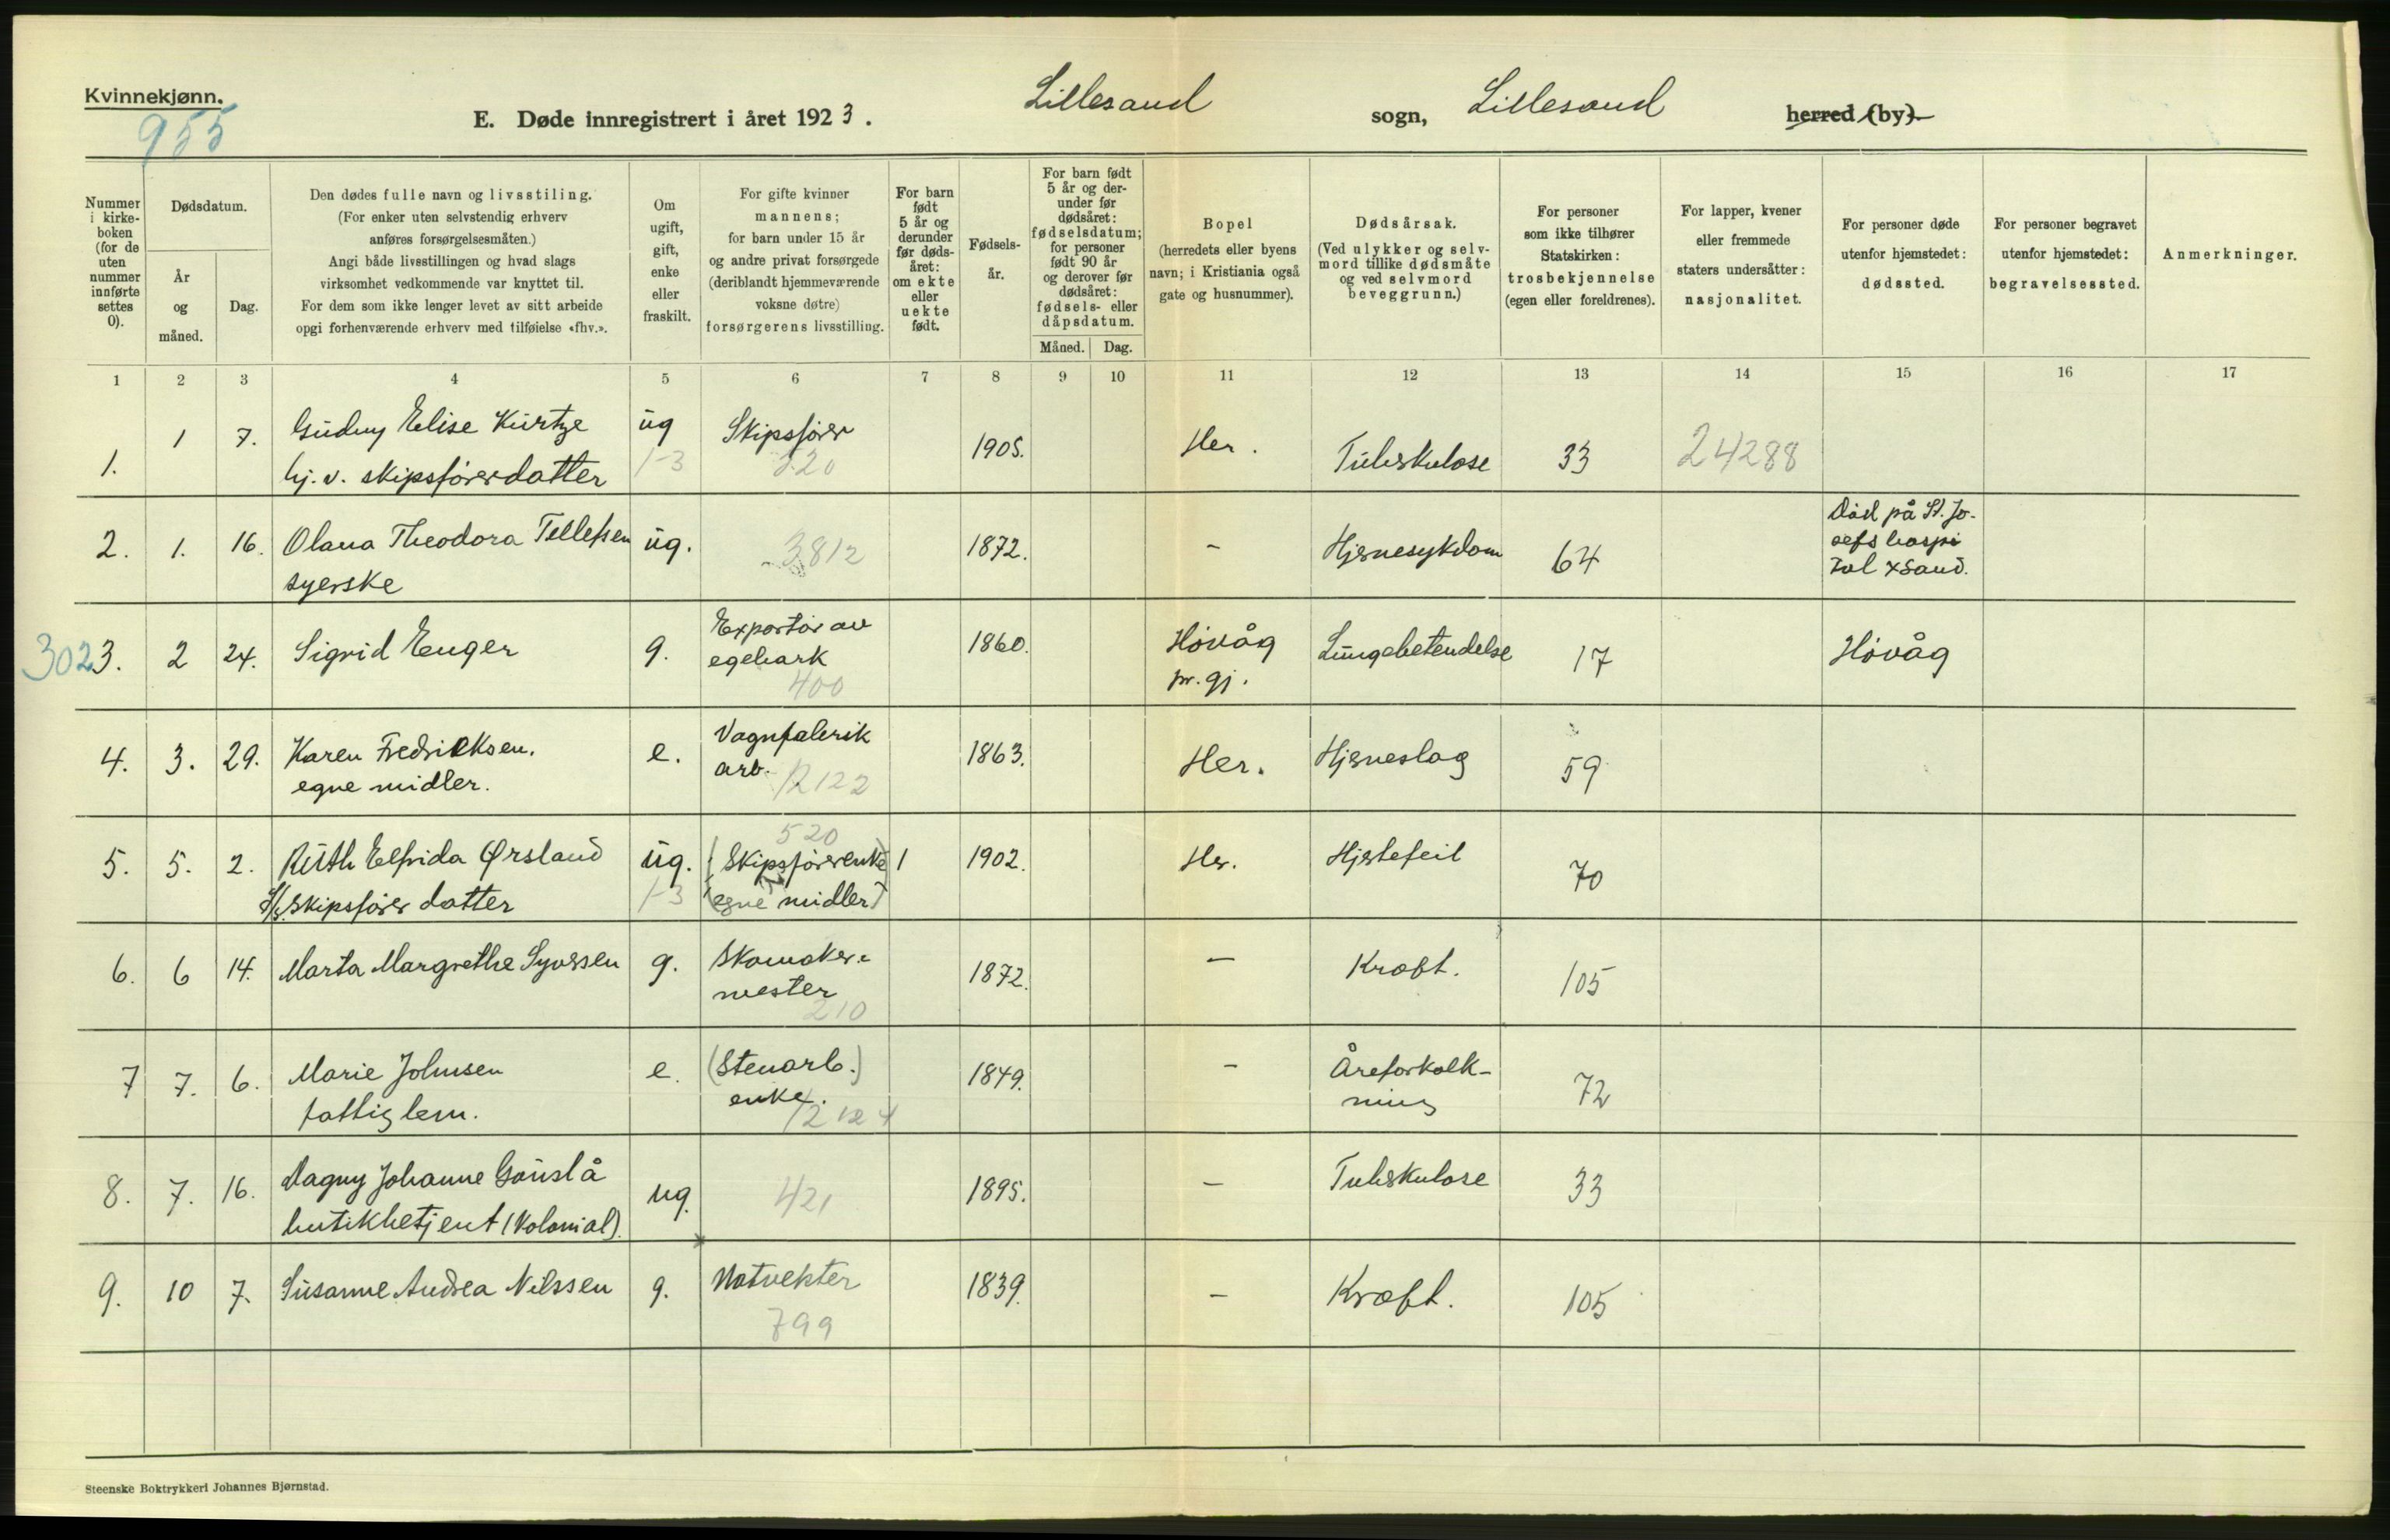 Kvinnekjønn.
955
E. Døde innregistrert i året 1923. Lillesand sogn, Lillesand herred (by).
Nummer i kirke-
boken
(for de
uten
nummer
innførte
settes
0).
Dødsdatum.
År
og
måned.
Dag.
Den dødes fulle navn og livsstiling.
(For enker uten selvstendig erhverv
anføres forsørgelsesmåten.)
Angi både livsstillingen og hvad slags
virksomhet vedkommende var knyttet til.
For dem som ikke lenger levet av sitt arbeide
opgi forhenværende erhverv med tilføielse «fhv.».
Om
ugift,
gift,
enke
eller
fraskilt.
For gifte kvinner
mannens;
for barn under 15 år
og andre privat forsørgede
(deriblandt hjemmeværende
voksne døtre)
forsørgerens livsstilling.
For barn
født
5 år og
derunder
før døds-
året:
om ekte
eller
uekte
født.
Fødsels-
år.
For barn født
5 år og der-
under før
dødsåret:
fødselsdatum;
for personer
født 90 år
og derover før
dødsåret:
fødsels- eller
dåpsdatum.
Måned. Dag.
Bopel
(herredets eller byens
navn; i Kristiania også
gate og husnummer).
Dødsårsak.
(Ved ulykker og selv-
mord tillike dødsmåte
og ved selvmord
beveggrunn.)
For personer
som ikke tilhører
Statskirken:
trosbekjennelse
(egen eller foreldrenes).
For lapper, kvener
eller fremmede
staters undersåtter:
nasjonalitet.
For personer døde
utenfor hjemstedet:
dødssted.
For personer begravet
utenfor hjemstedet:
begravelsessted.
Anmerkninger.
1 2 3 4 5 6 7 8 9 10 11 12 13 14 15 16 17
1. 1 7. Gudny Elise Kurtze ug Skipsfører 1905. Her. Tuberkulose 33 24288
hj. v. skipsførerdatter 1-3 520
2. 1. 16. Olava Theodora Tellefsen ug. 3812 1872. - Hjernesykdom 64 Död på St. Jo-
sefs hospi
tal Xsand.
syerske
302 3. 2 24. Sigrid Enger g. Exportør av 1860. Høvåg Lungebetendelse 17 Høvåg
egebark pr. gj.
400
4. 3. 29. Karen Fredriksen. e. Vognfabrik 1863. Her. Hjerneslag 59
egne midler. arb. 12122
520
5. 5. 2. Ruth Elfrida Ørsland ug. (Skipsførerenke 1 1902. Her. Hjertefeil 70
Skipsfører datter 1-3 (egne midler)
6. 6 14. Marta Margrethe Syversen g. Skomaker- 1872. - Kræft. 105
mester
210
7 7. 6. Marie Johnsen e. (Stenarb.) 1849. - Åreforkalk- 72
fattiglem. enke. 12124 ning
8. 7. 16. Dagny Johanne Gauslå ug. 421 1895. - Tuberkulose 33
butikbetjent (Kolonial).
9. 10 7. Susanne Andrea Nilssen g. Natvekter 1839. - Kræft. 105
799
Steenske Boktrykkeri Johannes Bjørnstad.